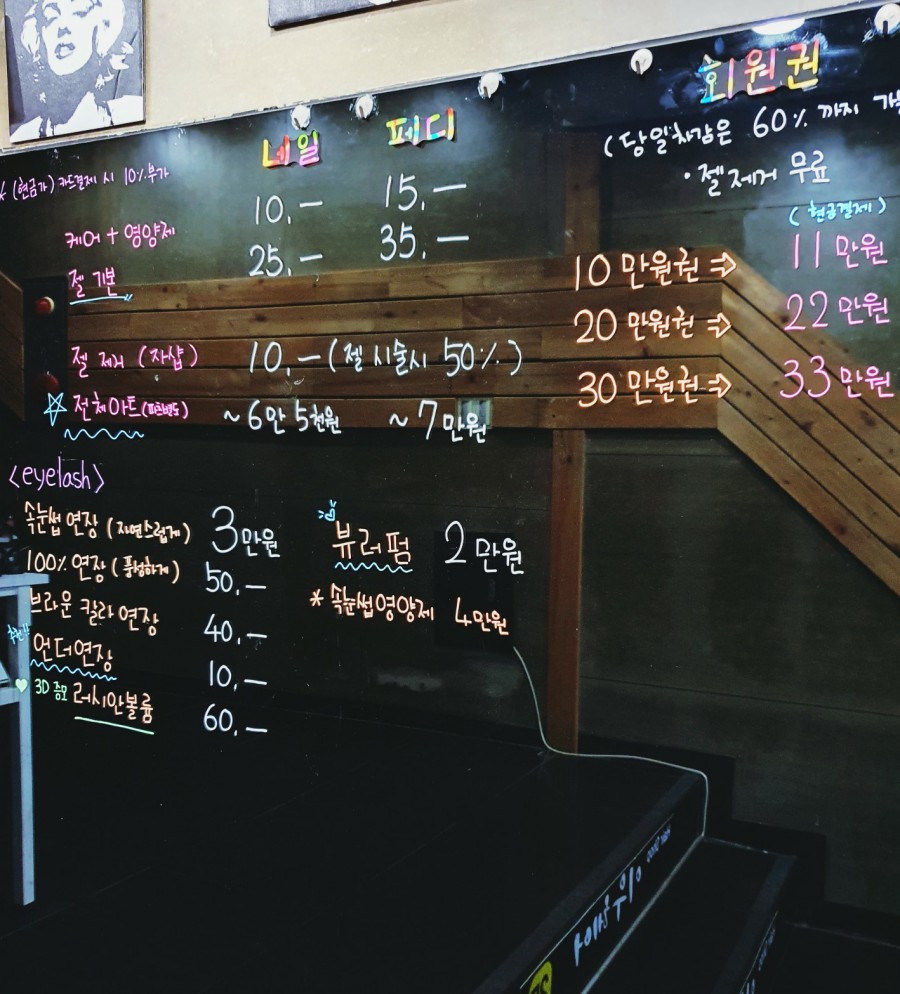 네일 페디
(현금가) 카드결제 시 10% 부가
케어 + 영양제 10.— 15.—
젤 기본 25.— 35.—
젤 제거 (자샵) 10.— (젤 시술시 50%)
전체아트(파츠별도) ~6만 5천원 ~7만원
회원권
(당일차감은 60% 까지
· 젤 제거 무료
(현금결제)
10만원권 ⇨ 11만원
20만원권 ⇨ 22만원
30만원권 ⇨ 33만원
<eyelash>
속눈썹 연장 (자연스럽게) 3만원
100% 연장 (풍성하게) 50.—
브라운 칼라 연장 40.—
추천!!
언더연장 10.—
3D 증모 러시안볼륨 60.—
뷰러펌 2만원
* 속눈썹영양제 4만원